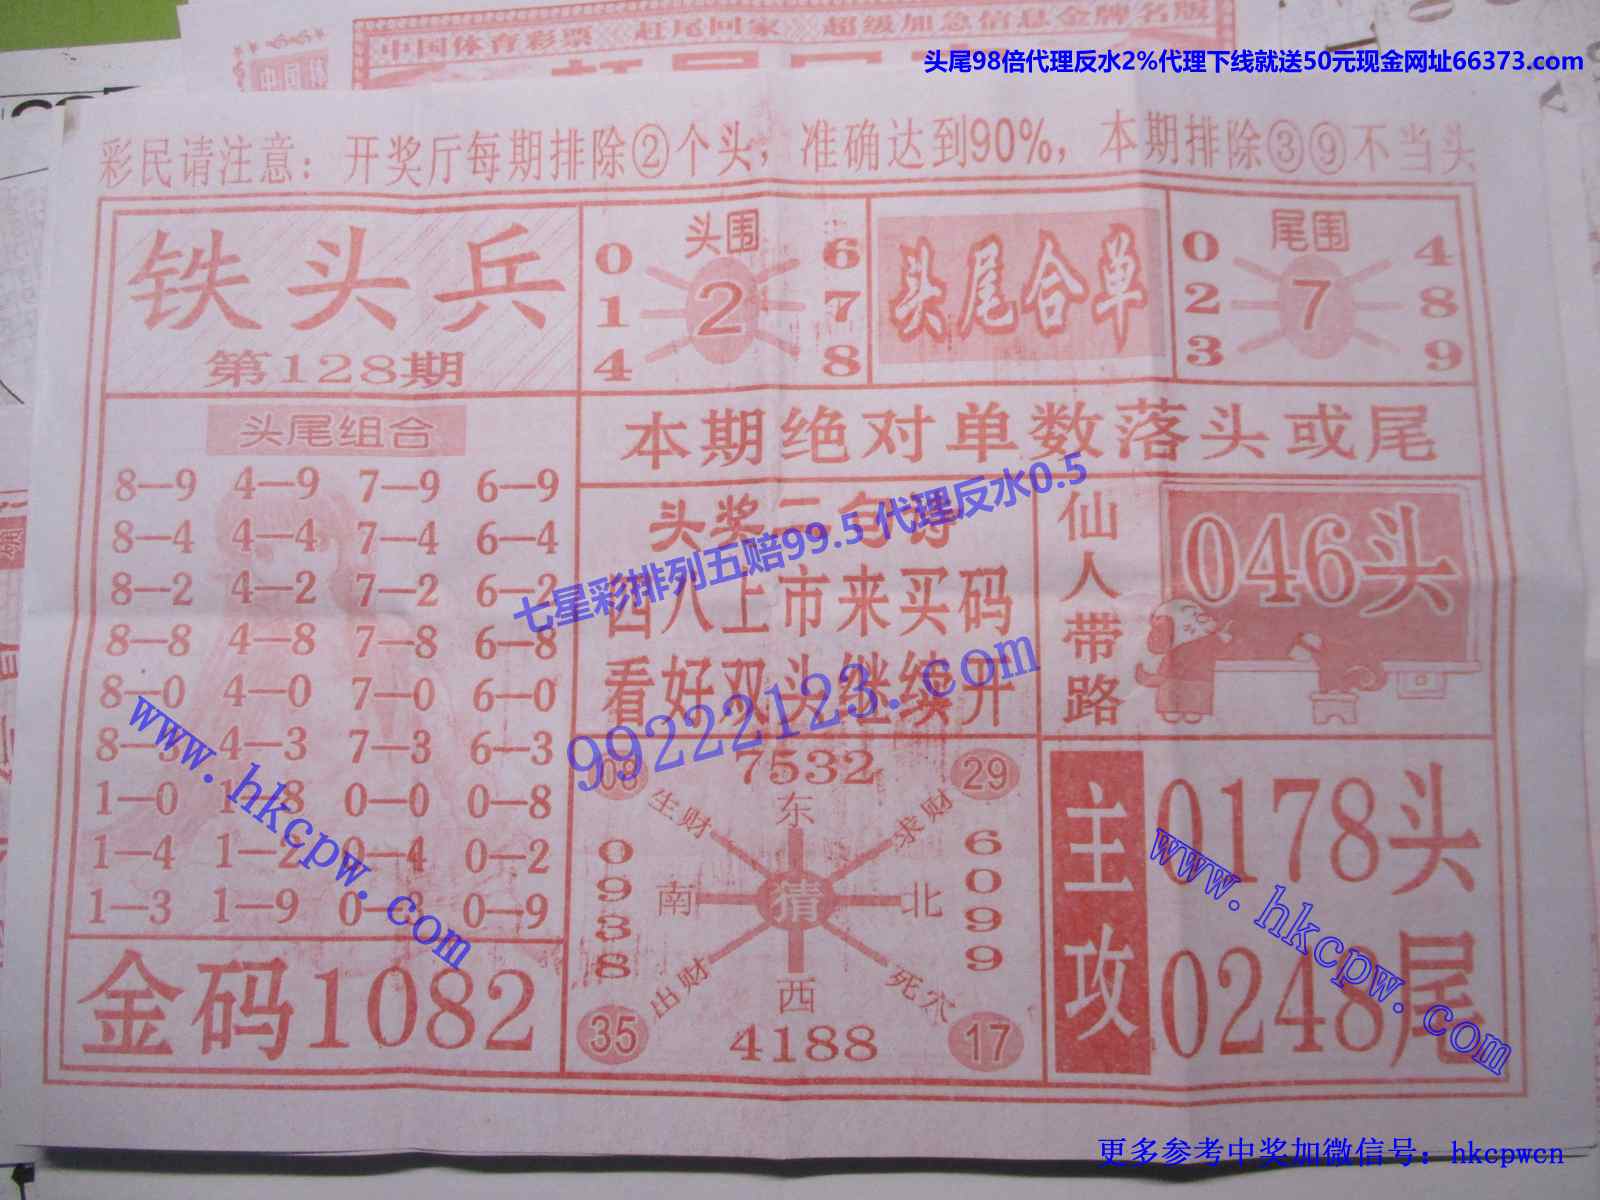 中国体育彩票 赶尾回家 超级加急信息金牌名版
头尾98倍代理反水2%代理下线就送50元现金网址66373.com
彩民请注意：开奖厅每期排除②个头，准确达到90%，本期排除③⑨不当头
铁头兵
第128期
头围
0 6
1 2 7
4 8
头尾合单
尾围
0 4
2 7 8
3 9
本期绝对单数落头或尾
头尾组合
8—9 4—9 7—9 6—9
8—4 4—4 7—4 6—4
8—2 4—2 7—2 6—2
8—8 4—8 7—8 6—8
8—0 4—0 7—0 6—0
8—3 4—3 7—3 6—3
1—0 1—8 0—0 0—8
1—4 1—2 0—4 0—2
1—3 1—9 0—3 0—9
金码1082
头奖二句诗
四八上市来买码
看好双头继续开
七星彩排列五赔99.5 代理反水0.5
99222123.com
仙人带路
046头
7532
29
生财 东 求财
0938
南 猜 北
6099
出财 西 死穴
35 4188 17
主攻
0178头
0248尾
www.hkcpw.com
www.hkcpw.com
更多参考中奖加微信号：hkcpwcn